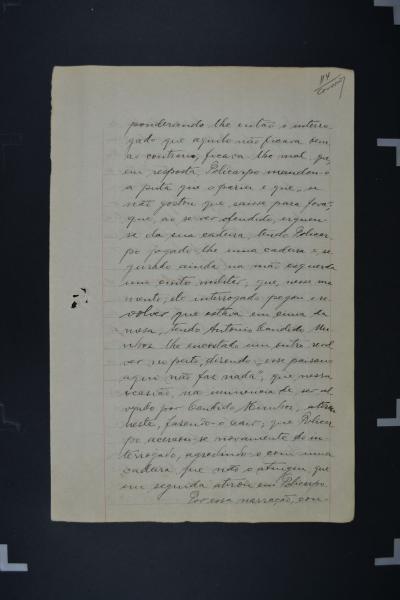 114
ponderando-lhe então o interro-
gado que aquilo não ficava bem
ao contrario, ficava-lhe mal, que
em resposta, Policarpo mandou-o
a puta que o pariu e que, se
não gostou que saisse para fora;
que, ao se ver ofendido, ergueu-
se da sua cadeira, tendo Policar-
po jogado-lhe uma cadeira e, se-
gurado ainda na mão esquerda
um cinto militar; que, nesse mo-
mento, ele interrogado pegou o re-
volver que estava em cima da
mesa, tendo Antonio Candido
lhe encostado um outro revol-
ver no peito, dizendo, "esse paisano
aqui não faz nada", que nessa
ocasião, na iminencia de ser al-
vejado por Candido, atirou
neste, fazendo-o cair; que Policar-
po acercou-se novamente do in-
terrogado, agredindo-o com uma
cadeira, que não o atingiu, que
em seguida atirou em Policarpo.
Por essa narração, con-